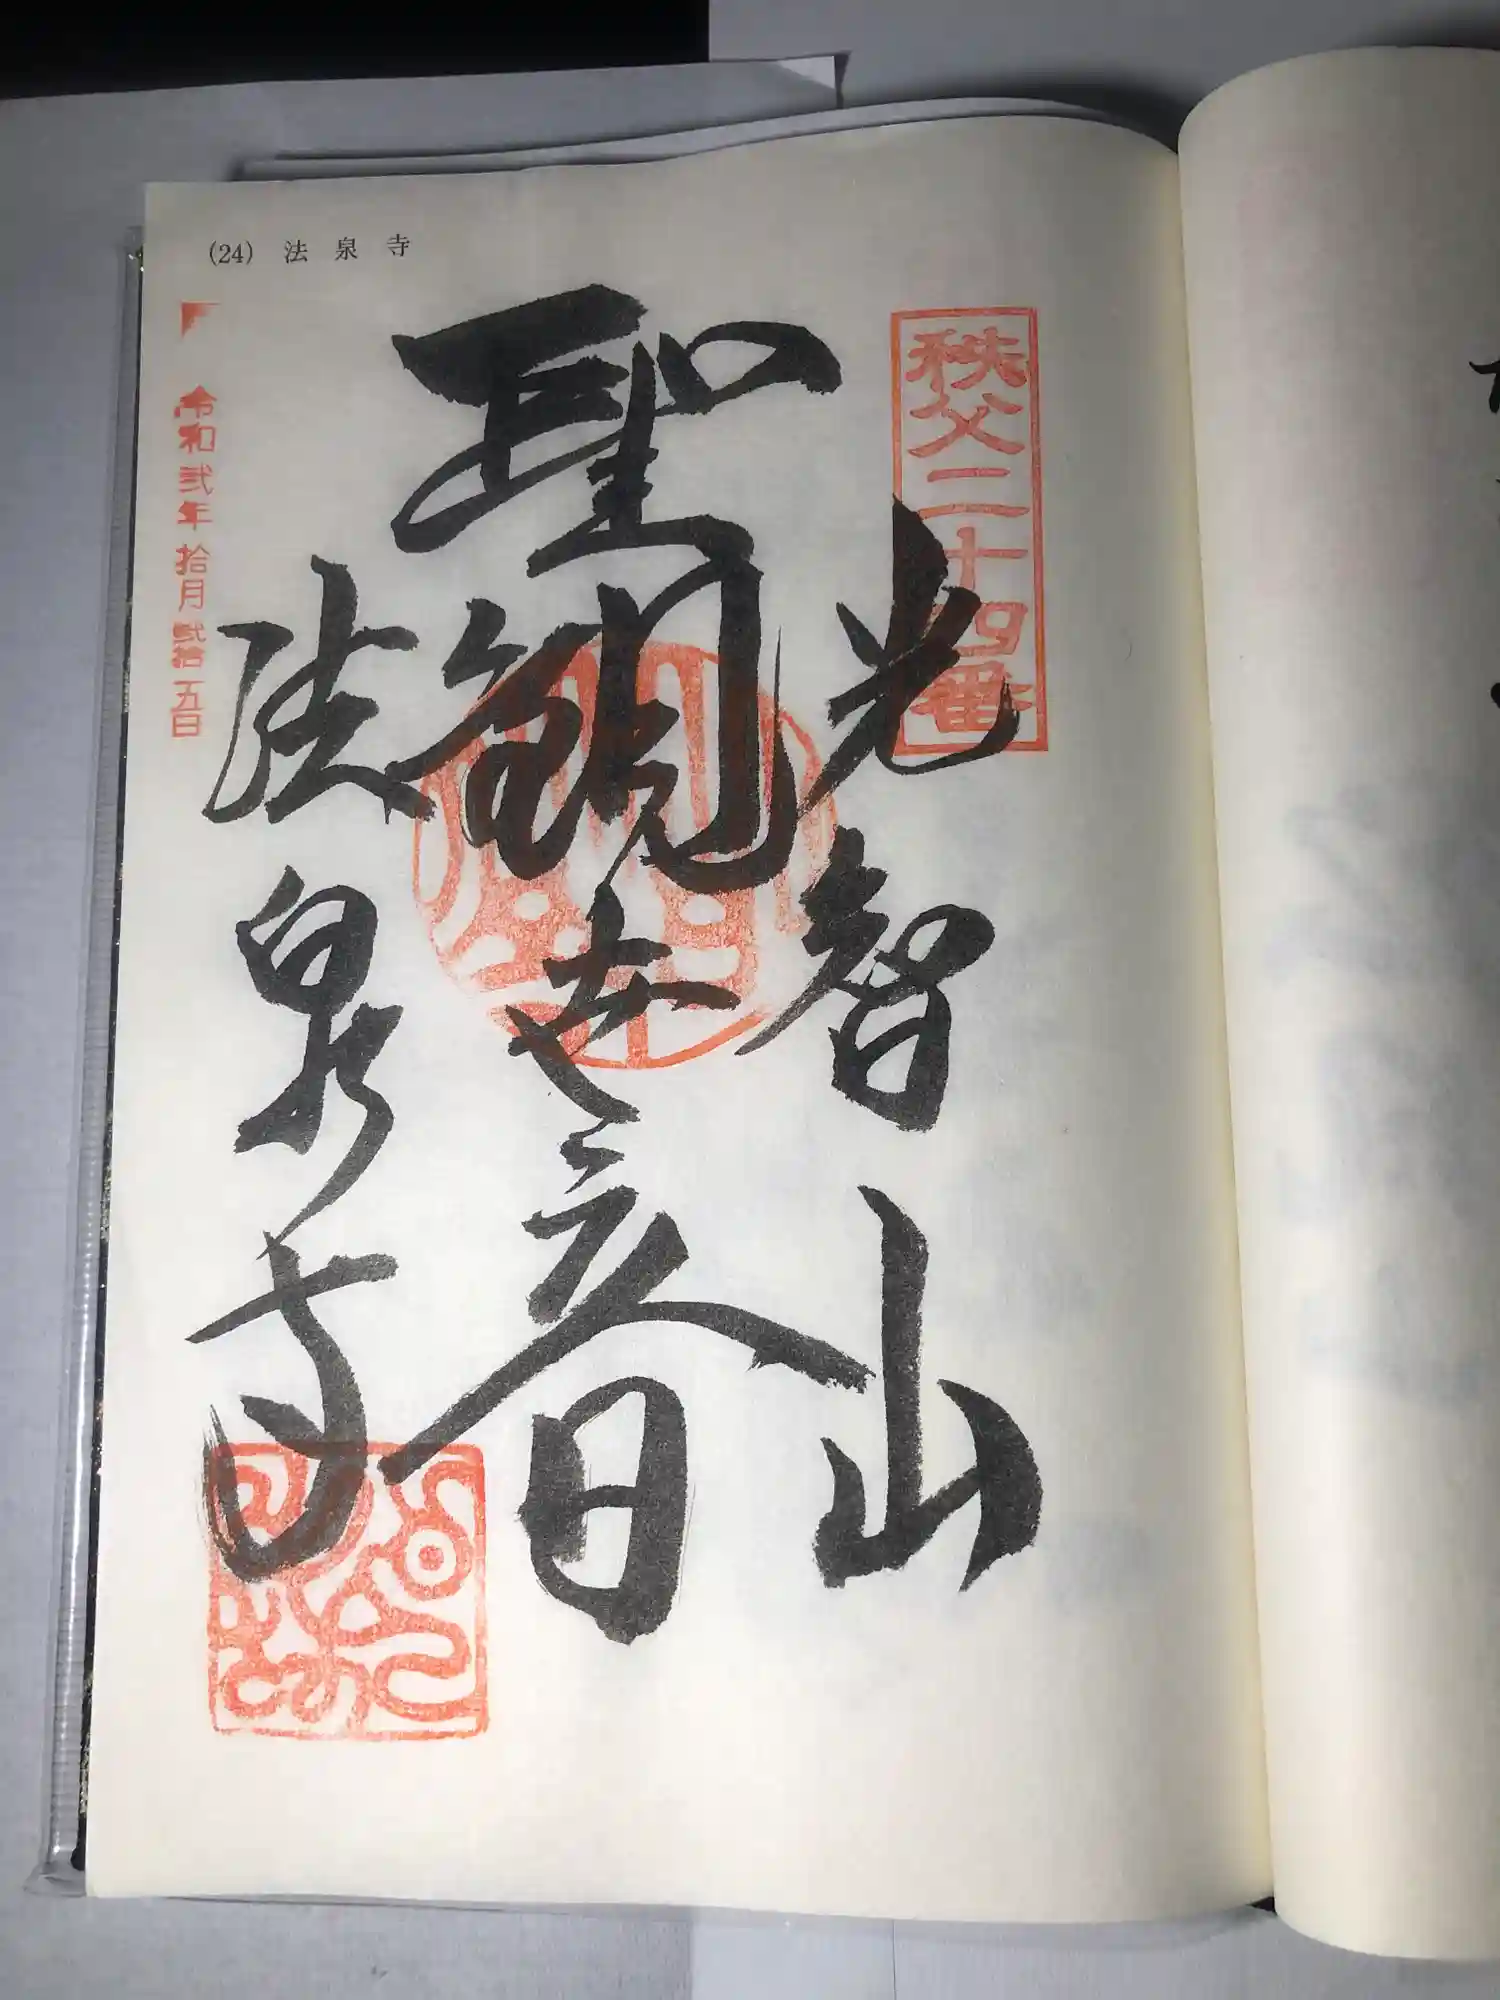 (24) 法泉寺
秩父二十四番
光智山
聖観世音
法泉寺
令和弐年拾月弐拾五日